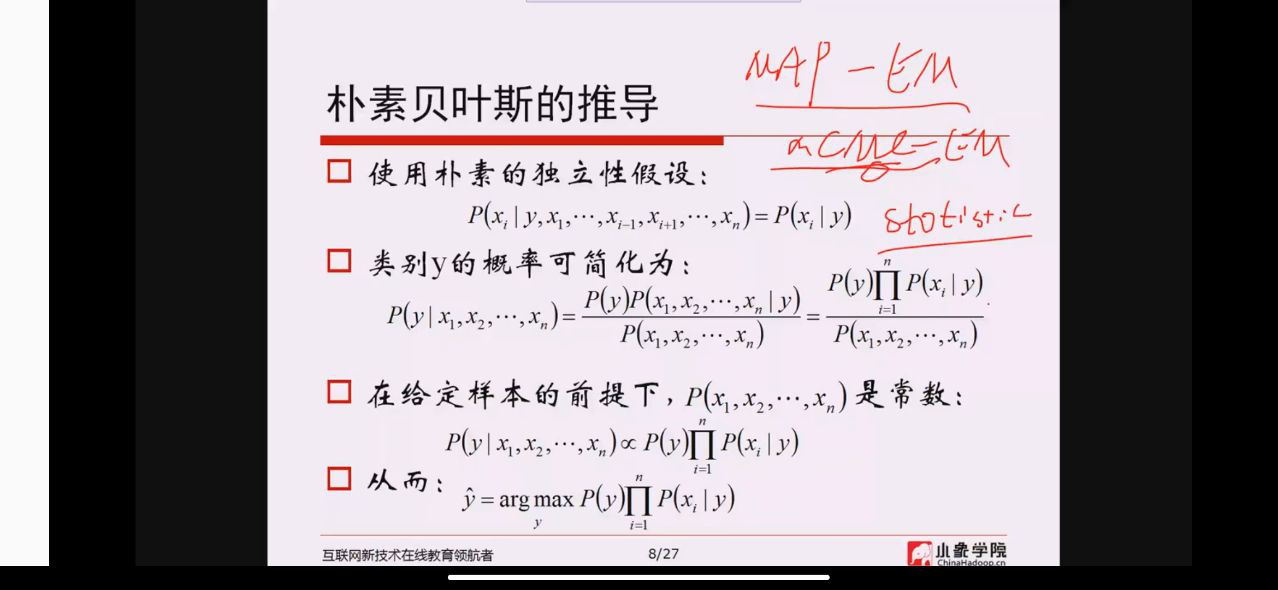 MAP - EM
朴素贝叶斯的推导
EM
使用朴素的独立性假设：
P(x_i | y, x_1, ⋯, x_{i−1}, x_{i+1}, ⋯, x_n) = P(x_i | y)
statistic
类别y的概率可简化为：
P(y | x_1, x_2, ⋯, x_n) = P(y)P(x_1, x_2, ⋯, x_n | y) / P(x_1, x_2, ⋯, x_n) = P(y)∏_{i=1}^{n} P(x_i | y) / P(x_1, x_2, ⋯, x_n)
在给定样本的前提下，P(x_1, x_2, ⋯, x_n) 是常数：
P(y | x_1, x_2, ⋯, x_n) ∝ P(y)∏_{i=1}^{n} P(x_i | y)
从而：ŷ = arg max_y P(y)∏_{i=1}^{n} P(x_i | y)
互联网新技术在线教育领航者 8/27 小象学院
ChinaHadoop.cn